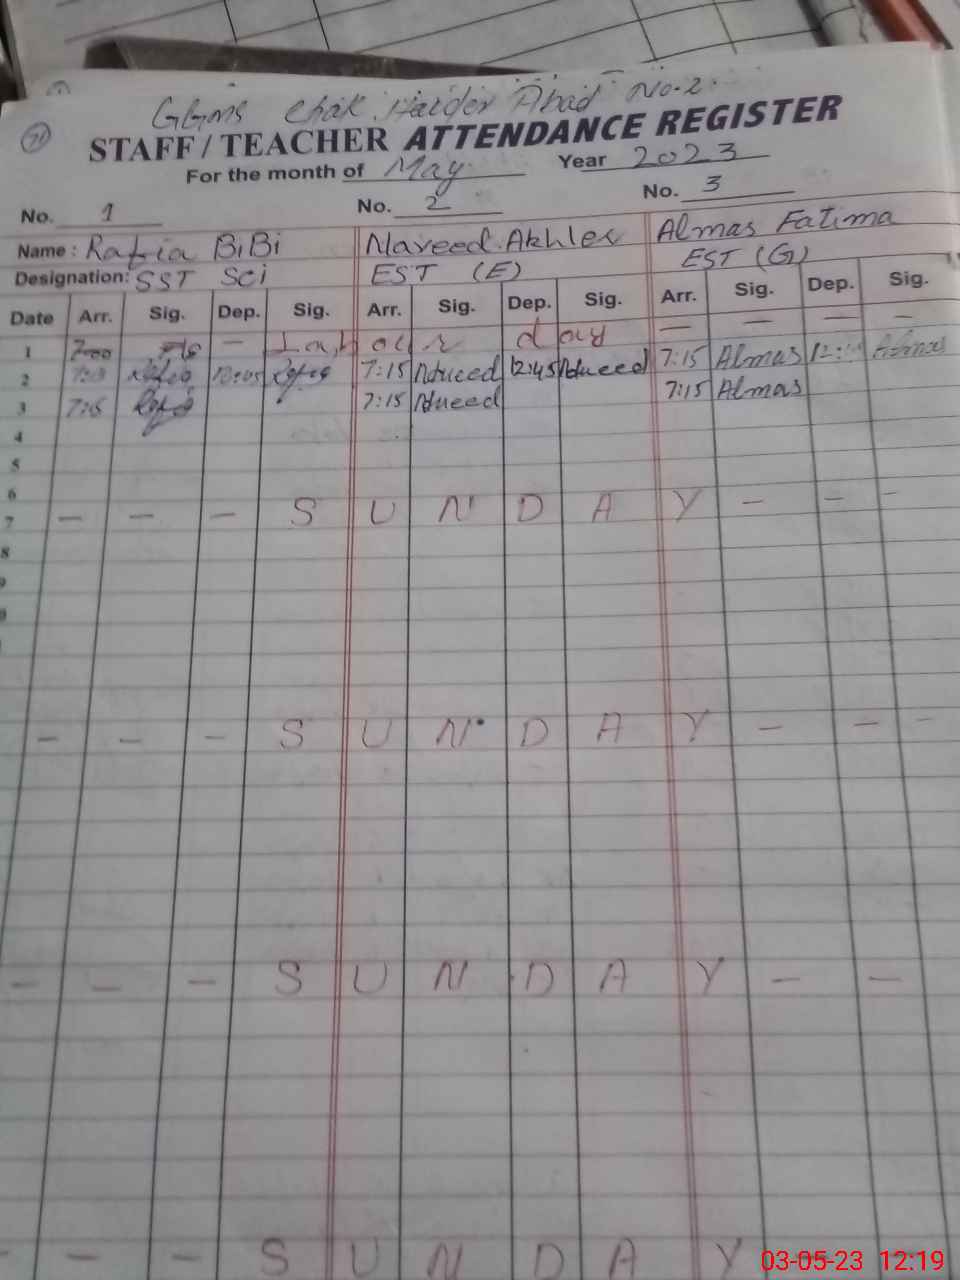 GGms Chak Haider Abad No.2.
71
STAFF / TEACHER ATTENDANCE REGISTER
For the month of May Year 2023
No. 1 No. 2 No. 3
Name : Rafia BiBi Naveed Akhler Almas Fatima
Designation: SST Sci EST (E) EST (G)
Date Arr. Sig. Dep. Sig. Arr. Sig. Dep. Sig. Arr. Sig. Dep. Sig.
1 7:00 — Labour day — — — —
2 Rafia Rafia 7:15 Naveed 12:45 Naveed 7:15 Almas Almas
3 7:15 Rafia 7:15 Naveed 7:15 Almas
4
5
6
7 — — — S U N D A Y — — —
8
— — — S U N D A Y — — —
— — — S U N D A Y — —
— — — S U N D A Y —
03-05-23 12:19